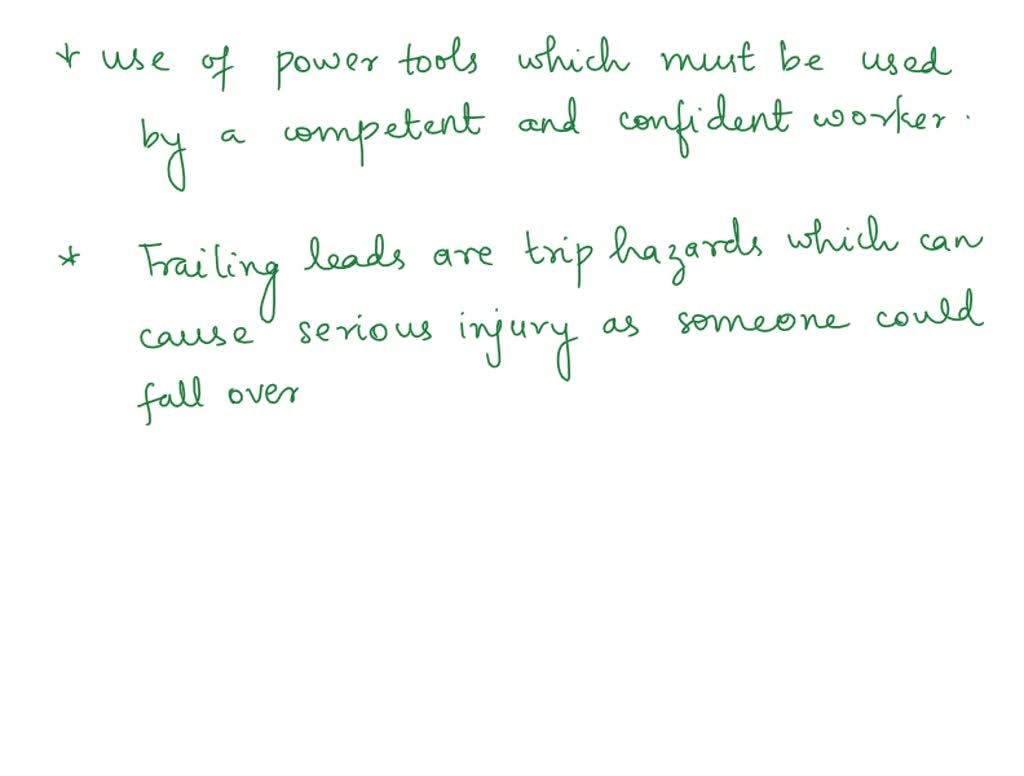 * use of power tools which must be used
by a competent and confident worker.
* Trailing leads are trip hazards which can
cause serious injury as someone could
fall over